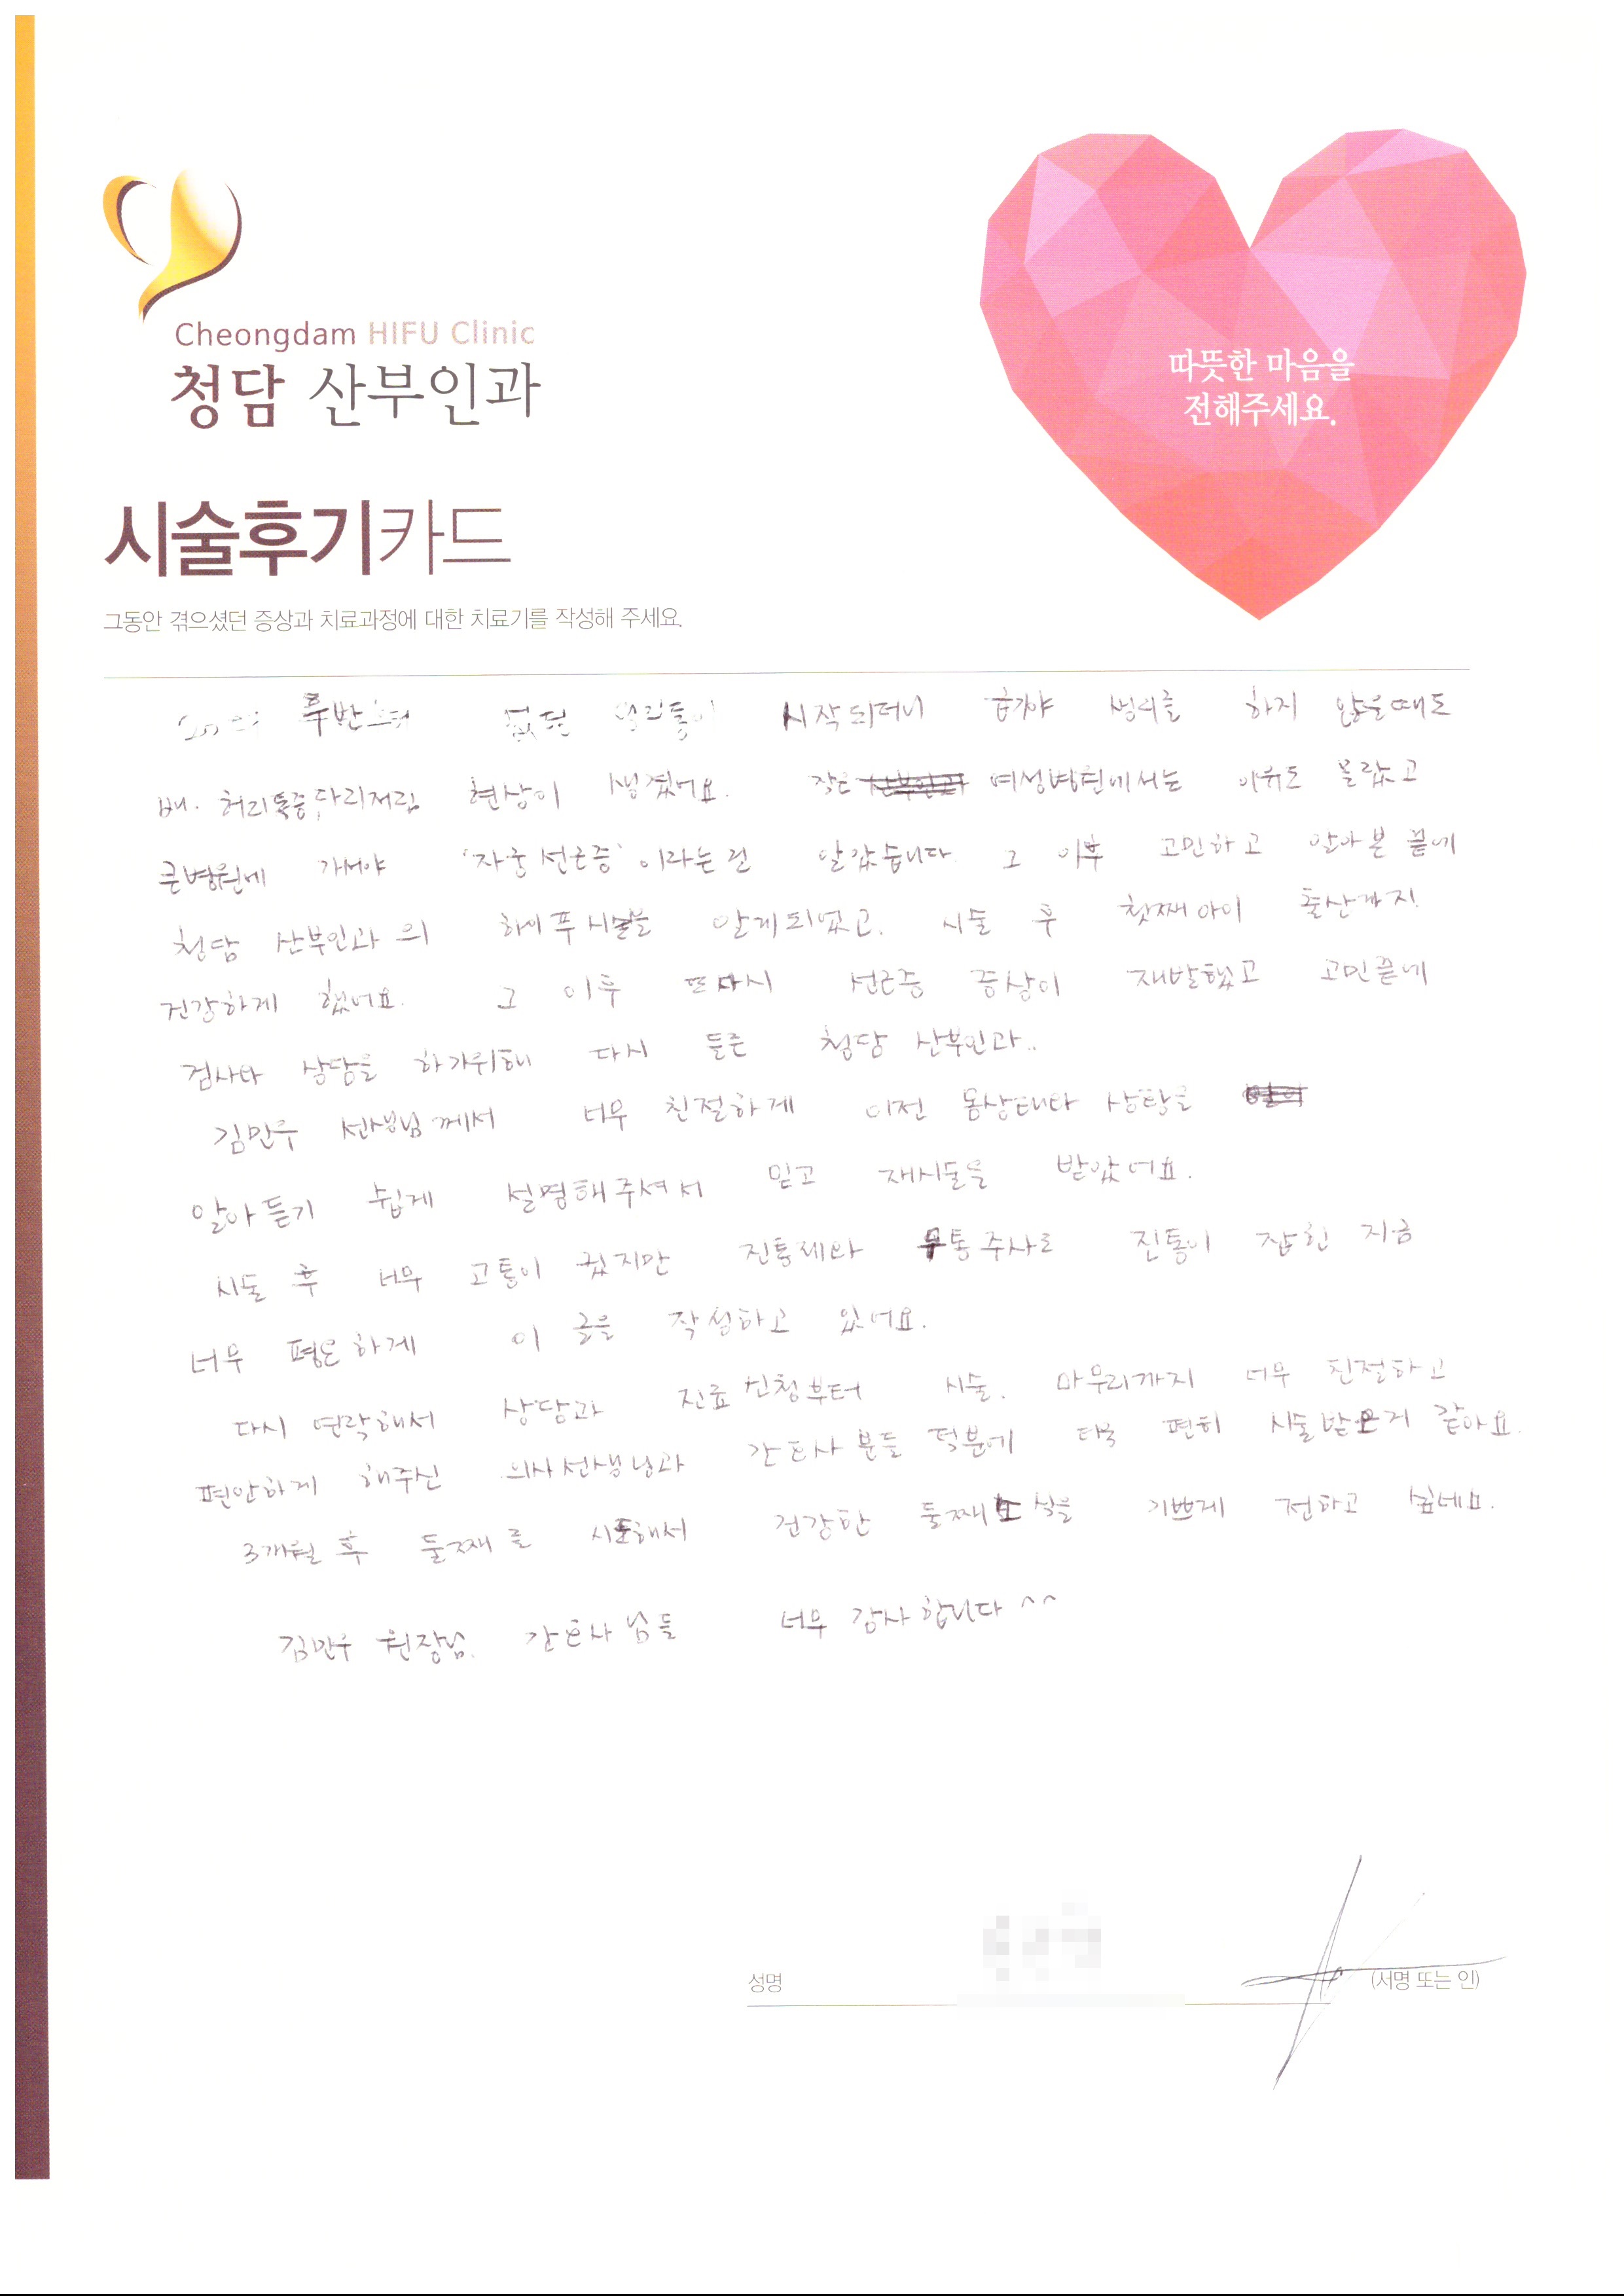 Cheongdam HIFU Clinic
청담 산부인과
따뜻한 마음을
전해주세요.
시술후기카드
그동안 겪으셨던 증상과 치료과정에 대한 치료기를 작성해 주세요.
후반부터 없던 시작되더니 급기야 생리를 하지 않을때도
배. 허리통증, 다리저림 현상이 생겼어요. 작은 여성병원에서는 이유도 몰랐고
큰병원에 가서야 '자궁선근증' 이라는걸 알았습니다. 그 이후 고민하고 알아본 끝에
청담 산부인과의 하이푸시술을 알게되었고. 시술 후 첫째아이 출산까지
건강하게 했어요. 그 이후 또다시 선근증 증상이 재발했고 고민끝에
검사와 상담을 하기위해 다시 들른 청담 산부인과..
김민우 선생님께서 너무 친절하게 이전 몸상태와
알아듣기 쉽게 설명해주셔서 믿고 재시술을 받았어요.
시술 후 너무 고통이 컸지만 진통제와 무통주사로 진통이 잡힌 지금
너무 평온하게 이 글을 작성하고 있어요.
다시 연락해서 상담과 진료신청부터 시술. 마무리까지 너무 친절하고
편안하게 해주신 의사선생님과 간호사분들 덕분에 더욱 편히 시술받은거 같아요.
3개월 후 둘째를 시도해서 건강한 둘째소식을 기쁘게 전하고 싶네요.
김민우 원장님. 간호사님들 너무 감사합니다 ^^
성명
(서명 또는 인)